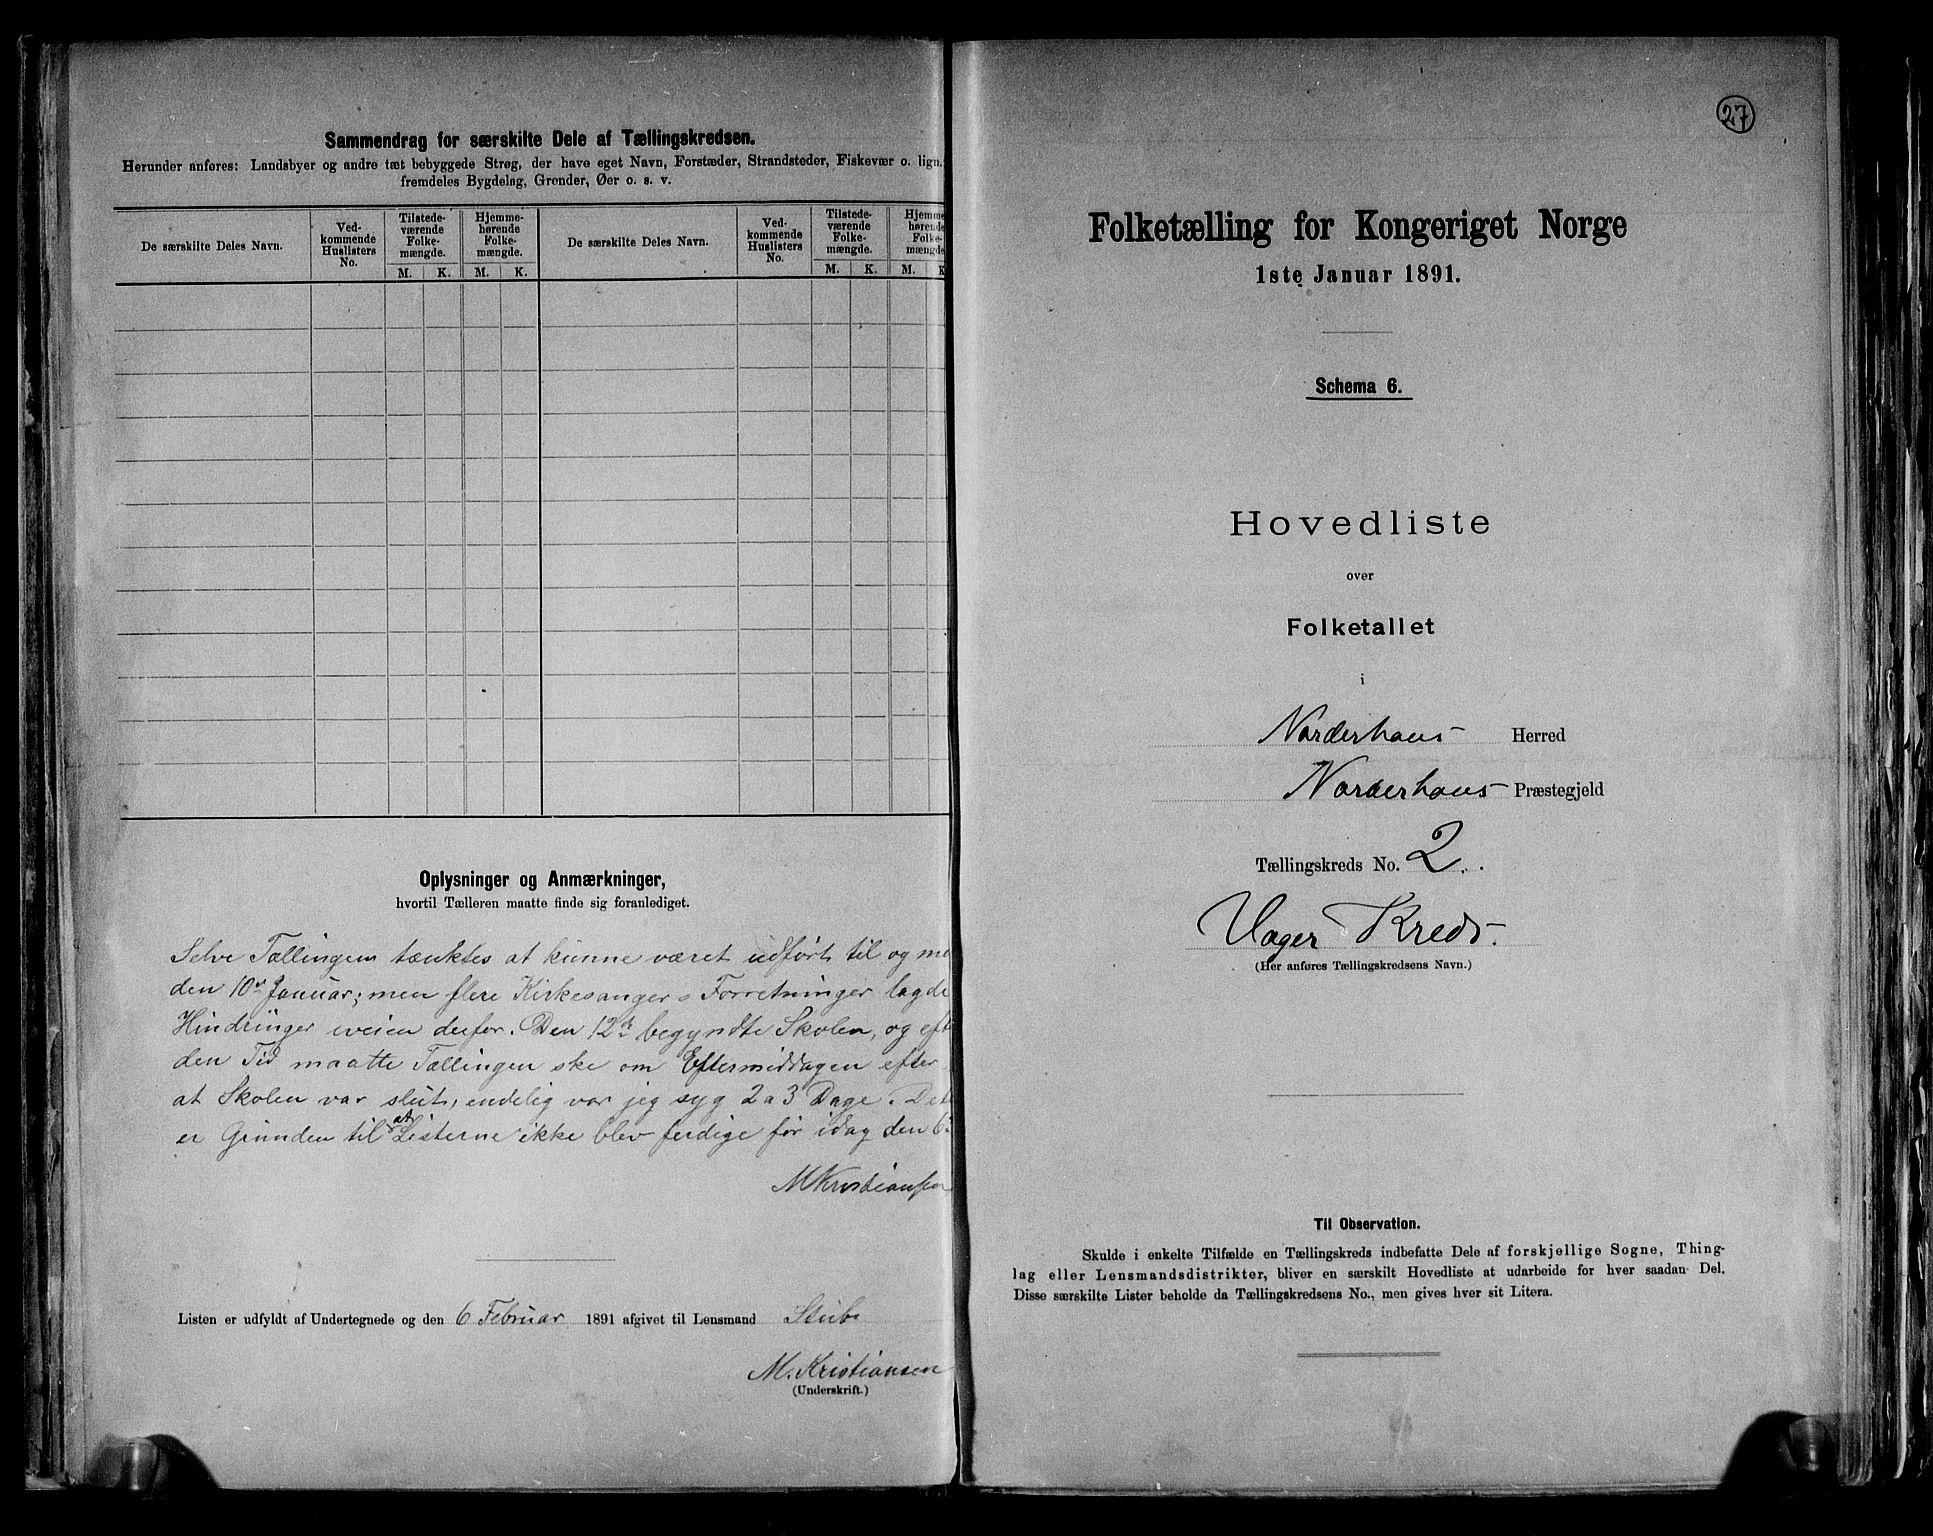 Sammendrag for særskilte Dele af Tællingskredsen.
Herunder anføres: Landsbyer og andre tæt bebyggede Strøg, der have eget Navn, Forstæder, Strandsteder, Fiskevær o. lign.
fremdeles Bygdelag, Grender, Øer o. s. v.
De særskilte Deles Navn. Ved-kommende Huslisters No. Tilstede-værende Folke-mængde. Hjemme-hørende Folke-mængde. De særskilte Deles Navn. Ved-kommende Huslisters No. Tilstede-værende Folke-mængde. Hjemme-hørende Folke-mængde
M. K. M. K. M. K. M. K
Oplysninger og Anmærkninger,
hvortil Tælleren maatte finde sig foranlediget.
Selve Tællingen tænktes at kunne været udført til og me
den 10de Januar; men flere Kirkesanger s Forretninger lagde
Hindringer iveien derfor. Den 12te begyndte Skolen, og eft
den Tid maatte Tællingen ske om Eftermiddagen efter
at Skolen var slut, endelig var jeg syg 2 a 3 Dage. Det
er Grunden til at Listerne ikke blev ferdige før idag den 6
MKristiansen
Listen er udfyldt af Undertegnede og den 6 Februar 1891 afgivet til Lensmand Stubs
M. Kristiansen
(Underskrift.)
27
Folketælling for Kongeriget Norge
1ste Januar 1891.
Schema 6.
Hovedliste
over
Folketallet
i
Norderhovs Herred
Norderhovs Præstegjeld
Tællingskreds No. 2.
Vager Kreds.
(Her anføres Tællingskredsens Navn.)
Til Observation.
Skulde i enkelte Tilfælde en Tællingskreds indbefatte Dele af forskjellige Sogne, Thing-
lag eller Lensmandsdistrikter, bliver en særskilt Hovedliste at udarbeide for hver saadan Del.
Disse særskilte Lister beholde da Tællingskredsens No., men gives hver sit Litera.